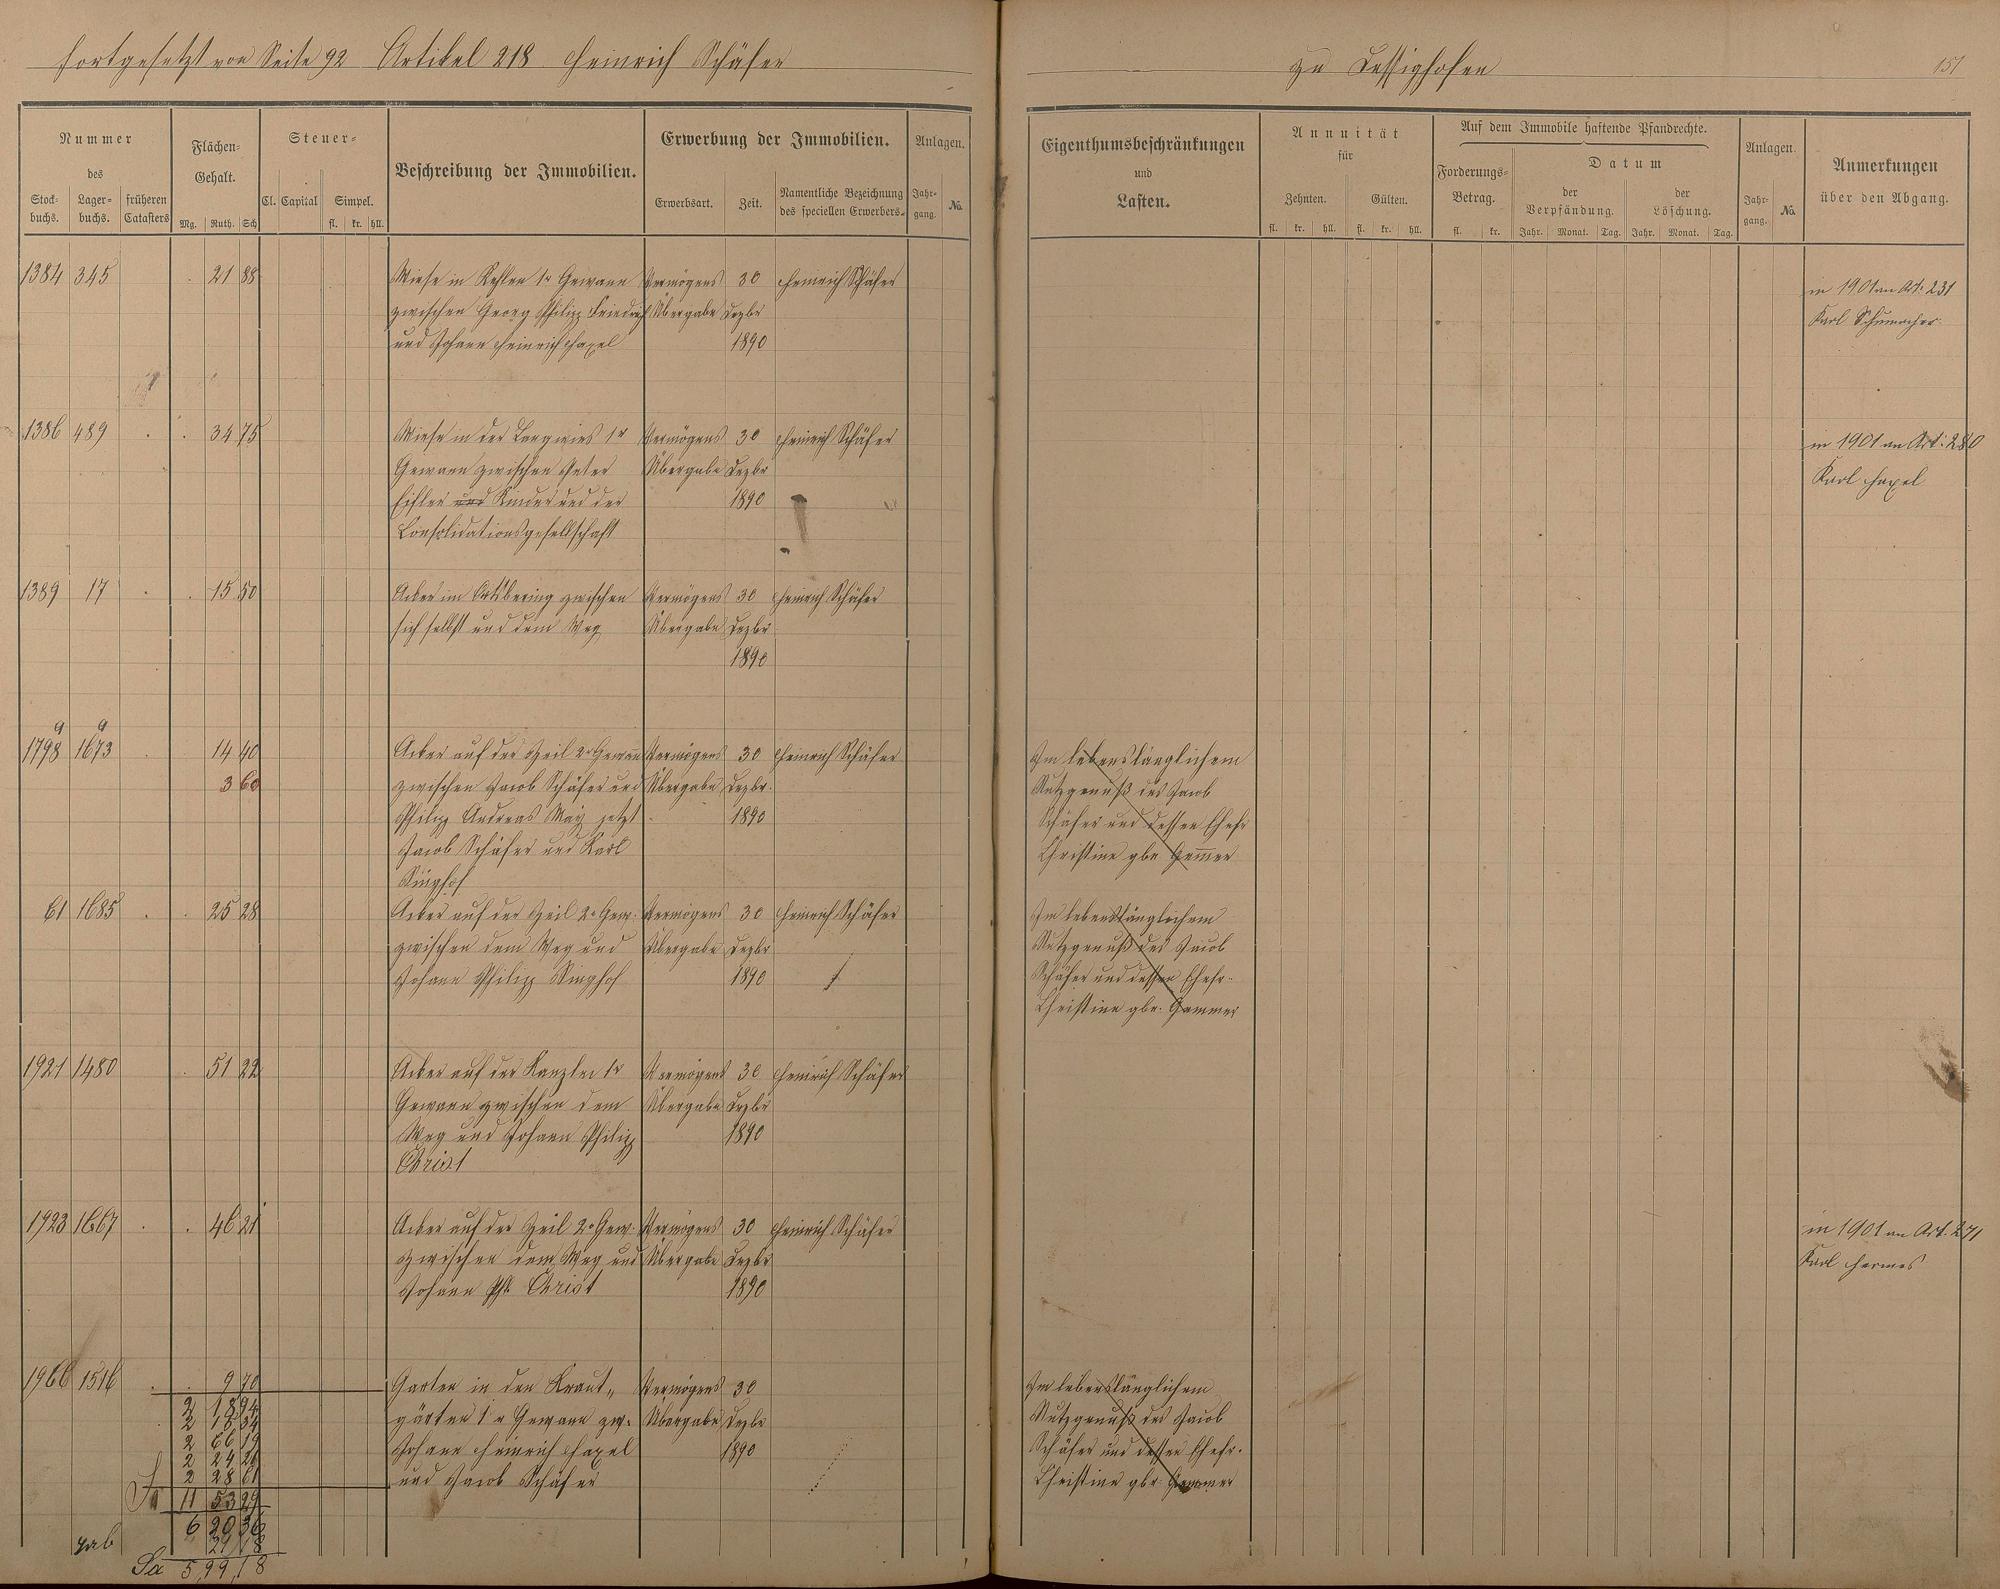 fortgesetzt von Seite 92 Artikel 218 Heinrich Schäfer
zu Lessighofen
151
Nummer
des
Stock-
buchs.
Lager-
buchs.
früheren
Catasters
Flächen-
Gehalt.
Mg. Ruth. Sch
Steuer-
Cl. Capital Simpel.
fl. kr. hll.
Beschreibung der Immobilien.
Erwerbung der Immobilien.
Erwerbsart. Zeit.
Namentliche Bezeichnung
des speciellen Erwerbers.
Anlagen.
Jahr-
gang.
No.
Eigenthumsbeschränkungen
und
Lasten.
Annuität
für
Zehnten. Gülten.
fl. kr. hll. fl. kr. hll.
Auf dem Immobile haftende Pfandrechte.
Forderungs-
Betrag.
fl. kr.
Datum
der
Verpfändung.
der
Löschung.
Jahr. Monat. Tag. Jahr. Monat. Tag.
Anlagen.
Jahr-
gang.
No.
Anmerkungen
über den Abgang.
1384 345 21 88 Wiese in 1r Gewann Vermögens 30 Heinrich Schäfer
zwischen Georg Philipp Friedrich Übergabe Dezbr
und Johann Heinrich Hagel 1890
in 1901 an Art. 231
Karl Schumacher
1386 489 34 75 Wiese in der Langwies 1r Vermögens 30 Heinrich Schäfer
Gewann zwischen Peter Übergabe Dezbr
und Kinder und der 1890
Consolidationsgesellschaft
in 1901 an Art. 280
Karl Hagel
1389 17 15 50 Acker im Ortsbering zwischen Vermögens 30 Heinrich Schäfer
sich selbst und dem Weg Übergabe Dezbr
1890
a a
1798 1673 14 40 Acker auf der Heil 2r Gewann Vermögens 30 Heinrich Schäfer
3 60 zwischen Jacob Schäfer und Übergabe Dezbr.
Philipp Andreas May jetzt 1890
Jacob Schäfer und Karl
Ringhof
Im lebenslänglichem
Nutzgenuß des Jacob
Schäfer und dessen Ehefr
Christine gbr. Gemmer
61 1685 25 28 Acker auf der Heil 2r Gew. Vermögens 30 Heinrich Schäfer
zwischen dem Weg und Übergabe Dezbr
Johann Philipp Ringhof 1890
Im lebenslänglichem
Nutzgenuß des Jacob
Schäfer und dessen Ehefr.
Christine gbr. Gemmer
1921 1480 51 22 Acker auf der Kanzlei 1r Vermögens 30 Heinrich Schäfer
Gewann zwischen dem Übergabe Dezbr
Weg und Johann Philipp 1890
Christ
1923 1667 46 21 Acker auf der Heil 2r Gew. Vermögens 30 Heinrich Schäfer
zwischen dem Weg und Übergabe Dezbr
Johann Ph. Christ 1890
in 1901 an Art. 271
Karl Hermes
1966 1516 9 70 Garten in den Kraut„ Vermögens 30
gärten 1r Gewann zw. Übergabe Dezbr
Johann Heinrich Hagel 1890
und Jacob Schäfer
Im lebenslänglichem
Nutzgenuß des Jacob
Schäfer und dessen Ehefr.
Christine gbr. Gemmer
2 18 94
2 15 34
2 66 19
2 24 21
2 28 61
Sa 11 53 29
6 20 36
gab 21 18
Sa 5,99,18